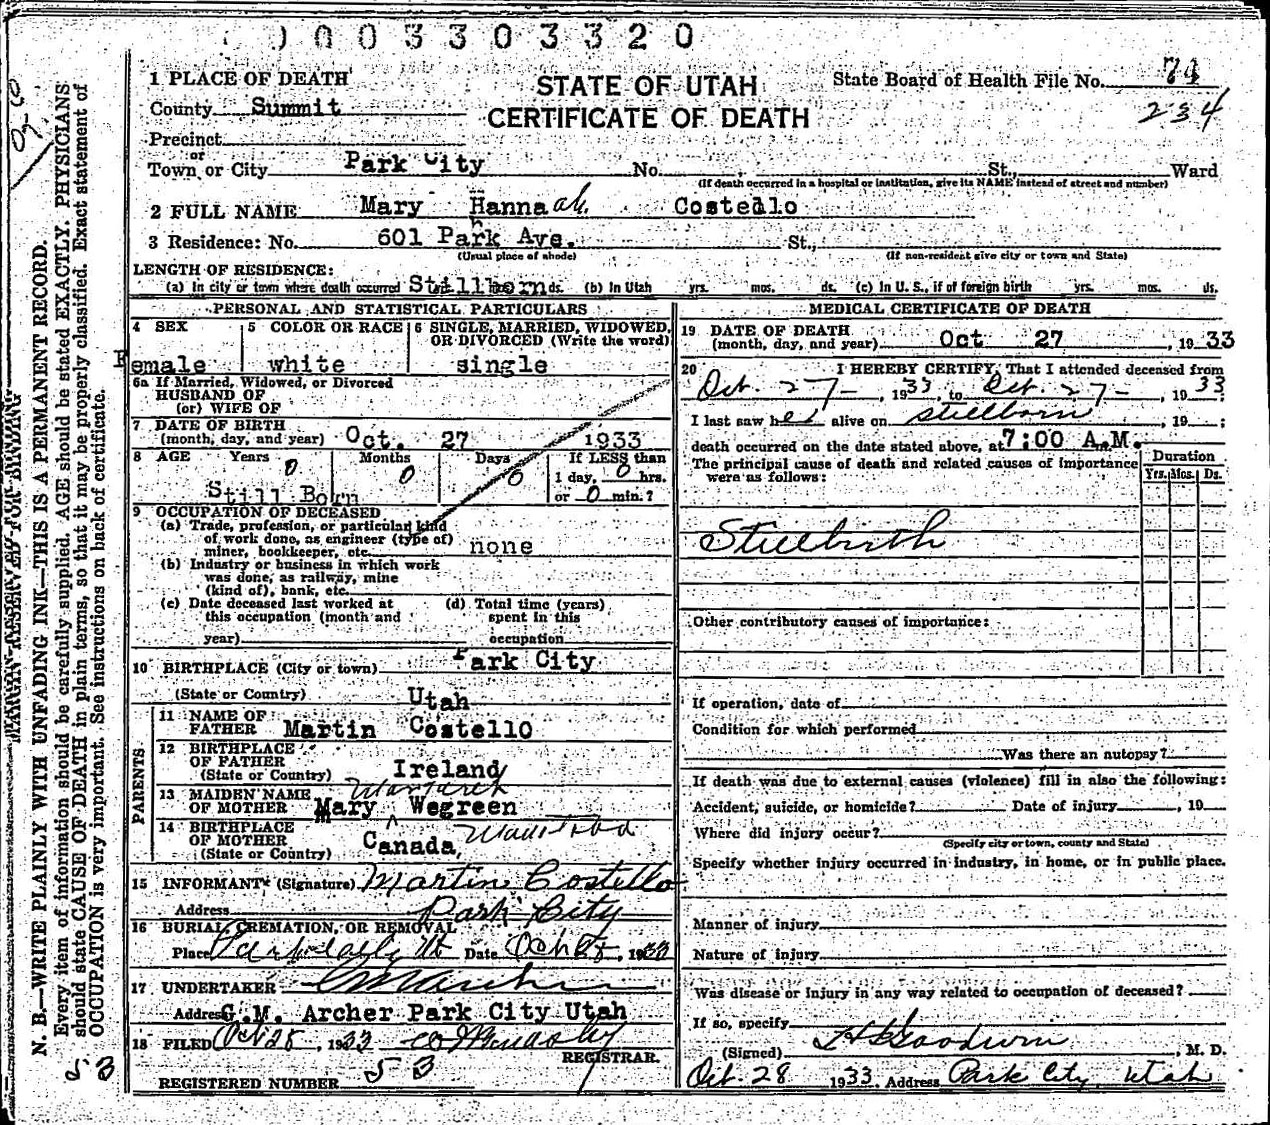 0003303320
1 PLACE OF DEATH
STATE OF UTAH
CERTIFICATE OF DEATH
State Board of Health File No. 74
234
County Summit
Precinct
or
Town or City Park City No. St., Ward
(If death occurred in a hospital or institution, give its NAME instead of street and number)
2 FULL NAME Mary Hannaah. Costello
3 Residence: No. 601 Park Ave. St.,
(Usual place of abode) (If non-resident give city or town and State)
LENGTH OF RESIDENCE:
(a) In city or town where death occurred Stillborn ds. (b) In Utah yrs. mos. ds. (c) In U. S., if of foreign birth yrs. mos. ds.
PERSONAL AND STATISTICAL PARTICULARS
4 SEX
Female
5 COLOR OR RACE
white
6 SINGLE, MARRIED, WIDOWED,
OR DIVORCED (Write the word)
single
6a If Married, Widowed, or Divorced
HUSBAND OF
(or) WIFE OF
7 DATE OF BIRTH
(month, day, and year) Oct. 27 1933
8 AGE Years Months Days If LESS than
0 0 0 1 day, 0 hrs.
Still Born or 0 min.?
9 OCCUPATION OF DECEASED
(a) Trade, profession, or particular kind
of work done, as engineer (type of)
miner, bookkeeper, etc. none
(b) Industry or business in which work
was done, as railway, mine
(kind of), bank, etc.
(c) Date deceased last worked at
this occupation (month and
year)
(d) Total time (years)
spent in this
occupation
10 BIRTHPLACE (City or town) Park City
(State or Country) Utah
PARENTS
11 NAME OF
FATHER Martin Costello
12 BIRTHPLACE
OF FATHER
(State or Country) Ireland
13 MAIDEN NAME Margaret
OF MOTHER Mary Wegreen
14 BIRTHPLACE
OF MOTHER
(State or Country) Canada, Manitoba
15 INFORMANT (Signature) Martin Costello
Address Park City
16 BURIAL, CREMATION, OR REMOVAL
Place Park City Ut Date Oct 28, 1933
17 UNDERTAKER
Address G.M. Archer Park City Utah
18 FILED Oct 28, 1933
REGISTRAR.
REGISTERED NUMBER 53
MEDICAL CERTIFICATE OF DEATH
19 DATE OF DEATH
(month, day, and year) Oct 27, 1933
20 I HEREBY CERTIFY, That I attended deceased from
Oct. 27-, 1933, to Oct. 27-, 1933
I last saw her alive on stillborn, 19 ;
death occurred on the date stated above, at 7:00 A.M.
The principal cause of death and related causes of importance
were as follows:
Duration
Yrs. Mos. Ds.
Stillbirth
Other contributory causes of importance:
If operation, date of
Condition for which performed
Was there an autopsy?
If death was due to external causes (violence) fill in also the following:
Accident, suicide, or homicide? Date of injury , 19
Where did injury occur?
(Specify city or town, county and State)
Specify whether injury occurred in industry, in home, or in public place.
Manner of injury
Nature of injury
Was disease or injury in any way related to occupation of deceased?
If so, specify
(Signed) Goodwin, M. D.
Oct. 28 1933, Address Park City, Utah
MARGIN RESERVED FOR BINDING
N. B.—WRITE PLAINLY WITH UNFADING INK—THIS IS A PERMANENT RECORD.
Every item of information should be carefully supplied. AGE should be stated EXACTLY. PHYSICIANS
should state CAUSE OF DEATH in plain terms, so that it may be properly classified. Exact statement of
OCCUPATION is very important. See instructions on back of certificate.
53